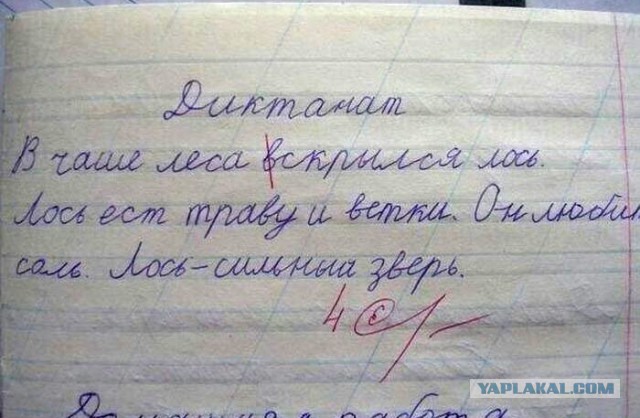 Диктанат
В чаше леса вскрылся лось.
Лось ест траву и ветки. Он любит
соль. Лось-сильный зверь.
4 С/-
YAPLAKAL.COM
работа